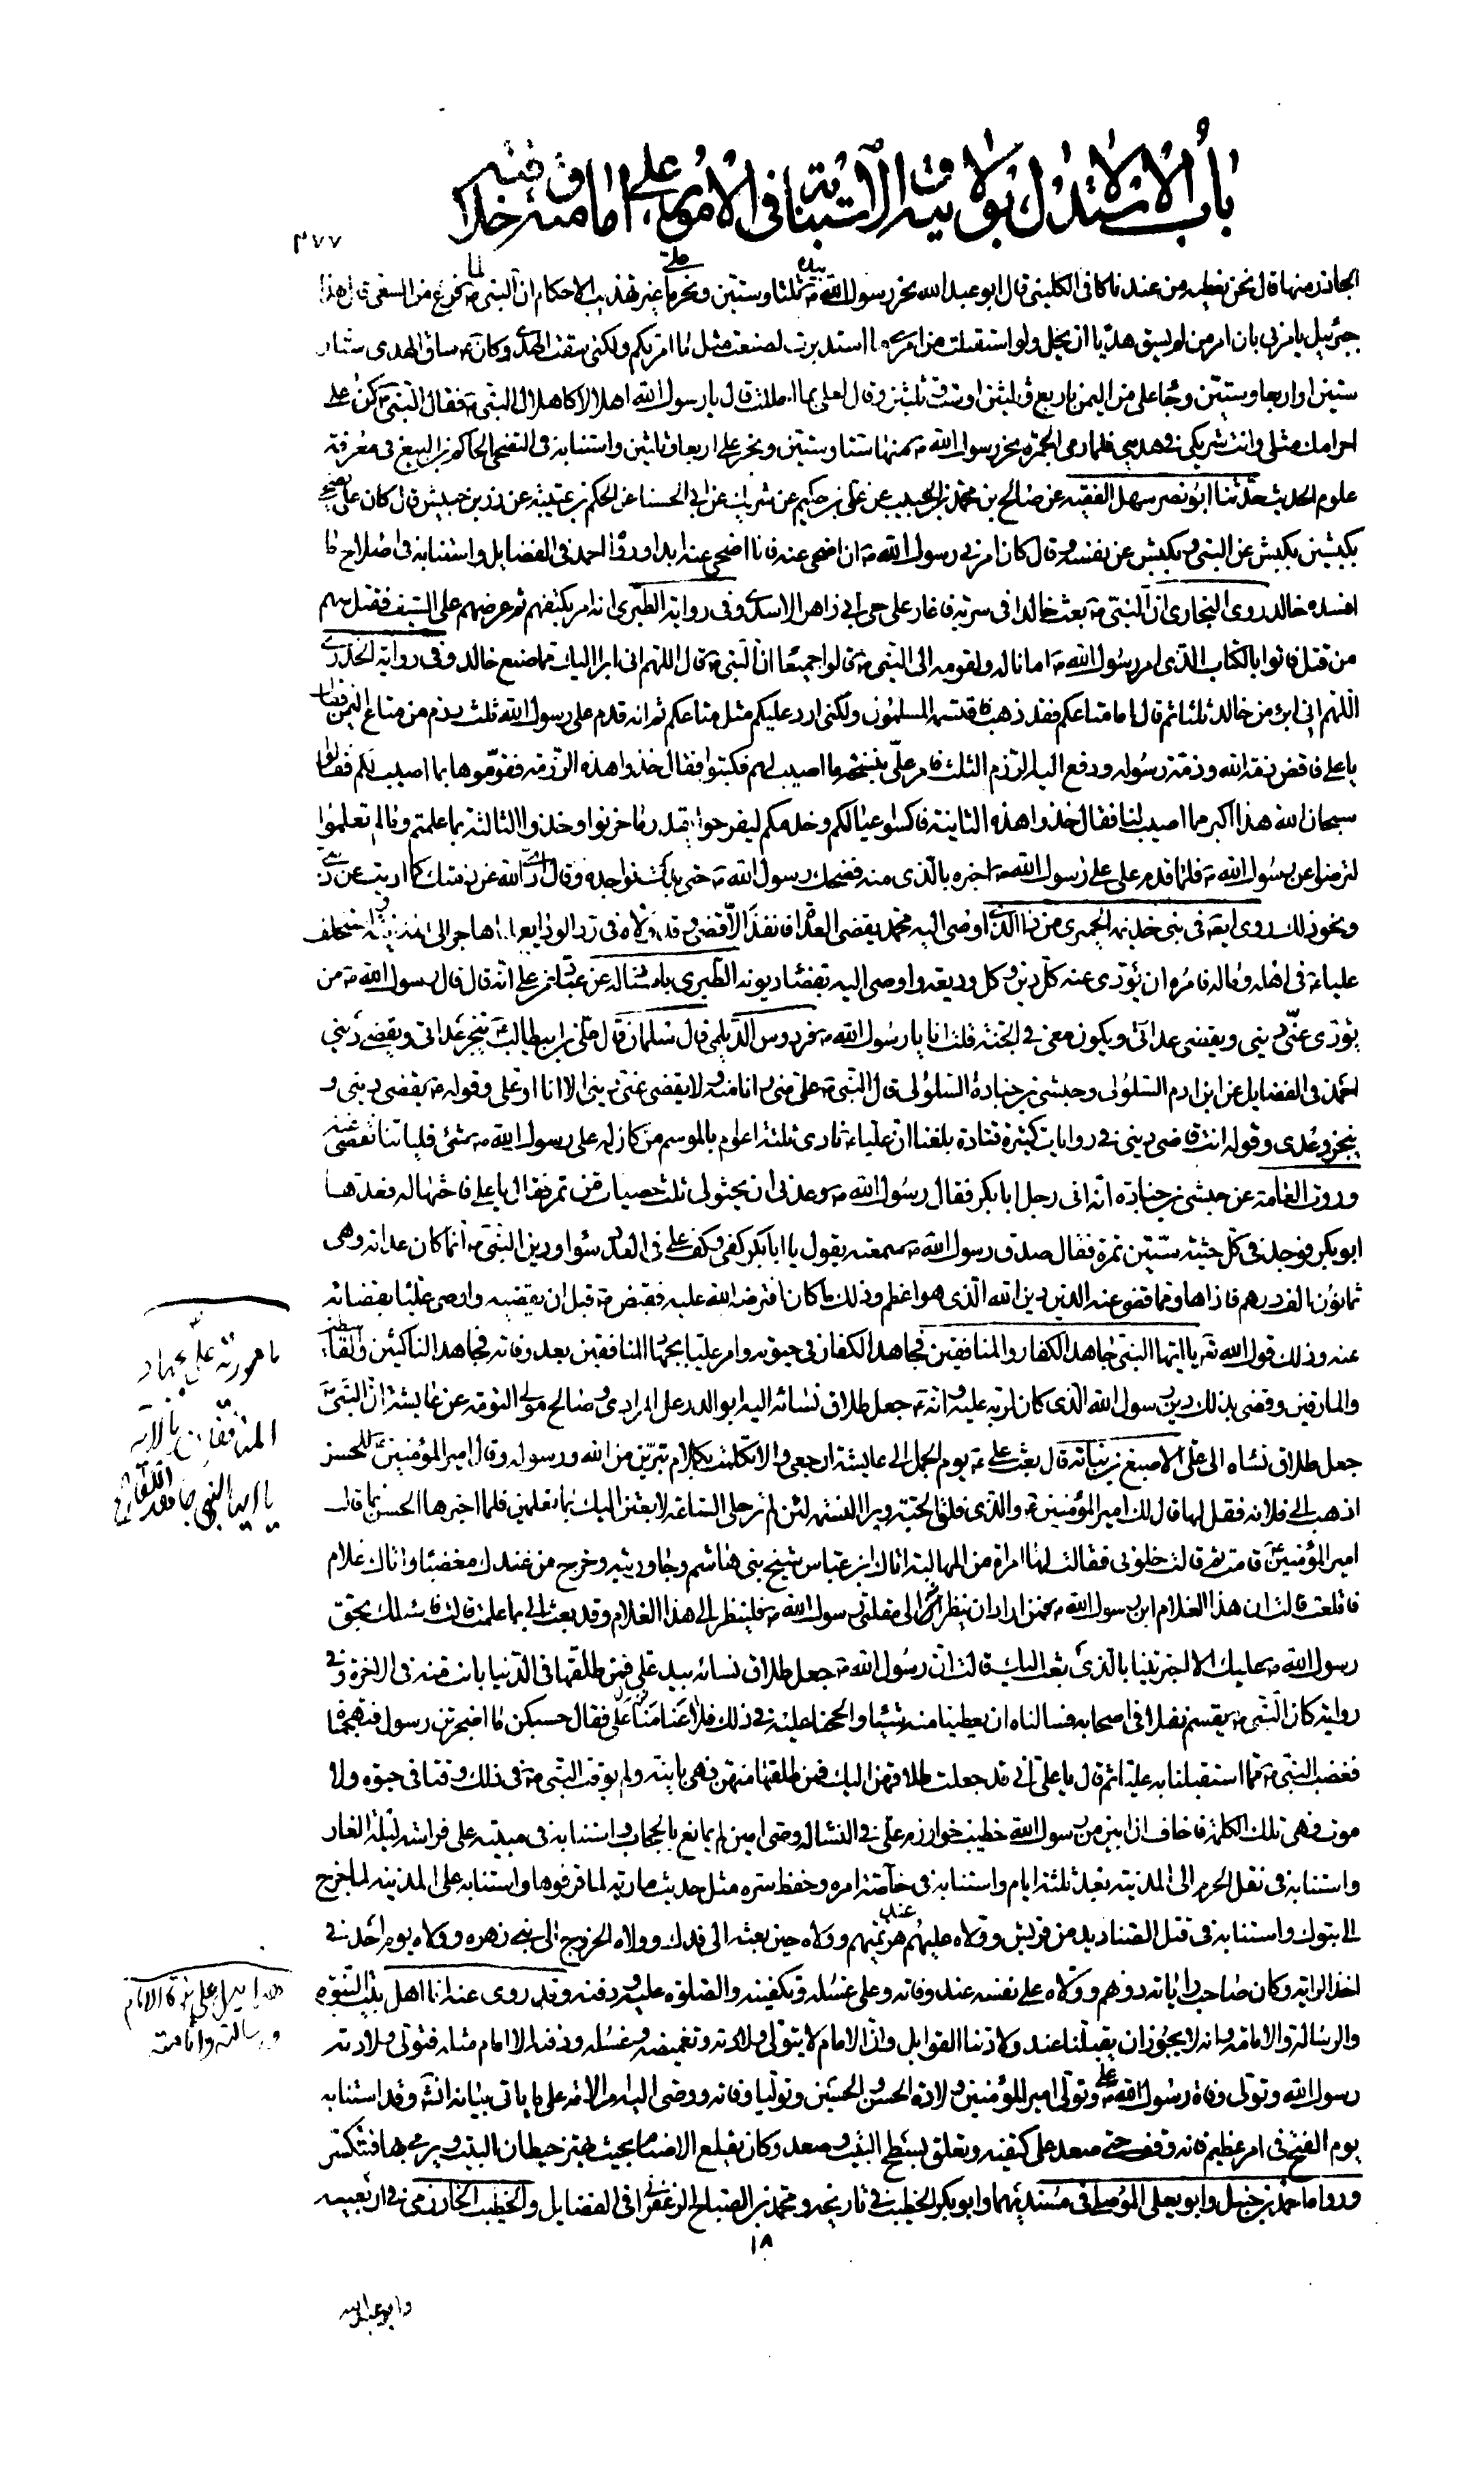 باب الاستدلال بولايته و استنابته في الامور على امامته و خلافته
٣٧٧
الجازر منها قال نحن نعطيه من عندنا كافي الكليني قال ابو عبد الله نحر رسول الله ص بيده ثلثا وستين ونحر علي ما غبر تهذيب الاحكام ان النبي ص لما فرغ من السعي قال هذا
جبرئيل يامرني بان امر من لم يسق هديا ان يحل ولو استقبلت من امري ما استدبرت لصنعت مثل ما امرتكم ولكني سقت الهدي وكان ص ساق الهدي ستا و
ستين او اربعا وستين وجا علي من اليمن باربع وثلثين او ست وثلثين وقال لعلي بما اهللت قال يا رسول الله اهلالا كاهلال النبي ص فقال النبي ص كن على
احرامك مثلي وانت شريكي في هديي فلما رمى الجمرة نحر رسول الله ص منها ستا وستين ونحر علي اربعا وثلثين واستنابه في التضحي الحاكم بن البيع في معرفة
علوم الحديث حدثنا ابو نصر سهل الفقيه عن صالح بن محمد بن الحبيب عن علي بن حكيم عن شريك عن ابي الحسنا عن الحكم بن عتيبة عن زر بن حبيش قال كان علي يضحي
بكبشين بكبش عن النبي وبكبش عن نفسه وقال كان امرني رسول الله ص ان اضحي عنه فانا اضحي عنه ابدا ورواه احمد في الفضايل واستنابه في اصلاح ما
افسده خالد روى البخاري ان النبي ص بعث خالدا في سرية فاغار على حي ابي زاهر الاسدي وفي رواية الطبري انه امر بكتفهم ثم عرضهم على السيف فقتل منهم
من قتل فاتوا بالكتاب الذي امر رسول الله ص امانا له ولقومه الى النبي ص قالوا جميعا ان النبي ص قال اللهم اني ابرا اليك مما صنع خالد وفي رواية الخدري
اللهم اني ابرئ من خالد ثلثا ثم قال اما متاعكم فقد ذهب فاقتسمه المسلمون ولكني ارد عليكم مثل متاعكم ثم انه قدم على رسول الله ثلث رزم من متاع اليمن فقال
يا علي فاقض ذمة الله وذمة رسوله ودفع اليه الرزم الثلث فامر علي بنسخة ما اصيب لهم فكتبوا فقال خذوا هذه الرزمة فقوموها بما اصيب لكم فقالوا
سبحان الله هذا اكبر مما اصيب لنا فقال خذوا هذه الثانية فاكسوا عيالكم وخدمكم ليفرحوا بقدر ما حزنوا وخذوا الثالثة بما علمتم وما لم تعلموا
لترضوا عن رسول الله ص فلما قدم علي على رسول الله ص اخبره بالذي منه فضحك رسول الله ص حتى بدت نواجده وقال ادى الله عن ذمتك كما اديت عن ذمتي
ونحو ذلك روي ايضا في بني خذيمة الحميري من ذا الذي اوصى اليه محمد يقضي العداة فانفذ الاقضا وقد ولاه في رد الودايع لما هاجر الى المدينة استخلف
عليا ع في اهله وماله فامره ان يؤدي عنه كل دين وكل وديعة واوصى اليه بقضاء ديونه الطبري باسناد له عن عباد عن علي انه قال قال رسول الله ص من
يؤدي عني ديني ويقضي عداتي ويكون معي في الجنة قلت انا يا رسول الله ص فردوس الديلمي قال سلمان قال ص علي بن ابي طالب ينجز عداتي ويقضي ديني
احمد في الفضايل عن ابن ادم السلولي وحبشي بن جنادة السلولي قال النبي ص علي مني وانا منه ولا يقضي عني ديني الا انا او علي وقوله ص يقضي ديني و
ينجز وعدي وقوله انت قاضي ديني في روايات كثيرة قتادة بلغنا ان عليا ع نادى ثلثة اعوام بالموسم من كان له على رسول الله ص شئ فلياتنا نقضي عنه
وروت العامة عن حبشي بن جنادة انه اتى رجل ابا بكر فقال رسول الله ص وعدني ان يحثو لي ثلث حثيات من تمر فقال يا علي فاحثها له فعدها
ابو بكر فوجد في كل حثية ستين تمرة فقال صدق رسول الله ص سمعته يقول يا ابا بكر كفي وكف علي في العدل سوا ودين النبي ص انما كان عداته وهي
ثمانون الف درهم فاداها ومما قضى عنه الدين دين الله الذي هو اعظم وذلك ما كان افترض الله عليه فقبض ص قبل ان يقضيه واوصى عليا بقضائه
عنه وذلك قول الله تع يا ايها النبي جاهد الكفار والمنافقين فجاهد الكفار في حيوته وامر عليا بجهاد المنافقين بعد وفاته فجاهد الناكثين والقاسطين
والمارقين وقضى بذلك دين رسول الله الذي كان لربه عليه وانه ص جعل طلاق نسائه اليه ابو الدر علي المرادي وصالح مولى التومة عن عايشة ان النبي ص
جعل طلاق نساه الى علي الاصبغ بن نباتة قال بعث علي ع يوم الجمل الى عايشة ارجعي والا تكلمت بكلام تبرين من الله ورسوله وقال امير المؤمنين ع للحسن
اذهب الى فلانة فقل لها قال لك امير المؤمنين ع والذي فلق الحبة وبرا النسمة لئن لم ترحلي الساعة لابعثن اليك بما تعلمين فلما اخبرها الحسن بما قال
امير المؤمنين ع قامت ثم قالت خلوني فقالت لها امراة من المهالبة اتاك ابن عباس شيخ بني هاشم وجاوبتيه وخرج من عندك مغضبا واتاك غلام
فاقلعت قالت ان هذا الغلام ابن رسول الله ص فمن اراد ان ينظر الى مقلتي رسول الله ص فلينظر الى هذا الغلام وقد بعث الي بما علمت قالت فاسئلك بحق
رسول الله ص عليك الا اخبرتينا بالذي بعث اليك قالت ان رسول الله ص جعل طلاق نسائه بيد علي فمن طلقها في الدنيا بانت منه في الاخرة وفي
رواية كان النبي ص يقسم نفلا في اصحابه فسالناه ان يعطينا منه شيئا والححنا عليه في ذلك فلامنا علي فقال حسبكن ما اضجرتن رسول الله فتهجمناه
فغضب النبي ص مما استقبلنا به عليا ثم قال يا علي اني قد جعلت طلاقهن اليك فمن طلقتها منهن فهي باينة ولم يوقت النبي ص في ذلك وقتا في حيوة ولا
موت فهي تلك الكلمة فاخاف ان ابين من رسول الله خطيب خوارزم علي في النساء له وصي امين لم يمانع بالحجاب واستنابه في مبيته على فراشه ليلة الغار
واستنابه في نقل الحرم الى المدينة بعد ثلثة ايام واستنابه في خاصة امره وحفظ سره مثل حديث مارية لما قرفوها واستنابه على المدينة لما خرج
الى تبوك واستنابه في قتل الصناديد من قريش وولاه عليهم عند هزيمتهم وولاه حين بعثه الى فدك وولاه الخروج الى بني زهرة وولاه يوم احد في
اخذ الراية وكان صاحب رايته دونهم وولاه على نفسه عند وفاته وعلى غسله وتكفينه والصلوة عليه ودفنه وقد روي عنه انا اهل بيت النبوة
والرسالة والامامة وانه لا يجوز ان يقبلنا عند ولادتنا القوابل وان الامام لا يتولى ولادته وتغميضه وغسله ودفنه الا امام مثله فتولى ولادته
رسول الله وتولى وفاة رسول الله ص علي وتولى امير المؤمنين ولادة الحسن والحسين وتوليا وفاته ووصى اليه امر الامة على ما ياتي بيانه انشه وقد استنابه
يوم الفتح في امر عظيم فانه وقف حتى صعد على كتفيه وتعلق بسطح البيت وصعد وكان يقلع الاصنام بحيث يهتز حيطان البيت ويرمي بها فتنكسر
ورواه احمد بن حنبل وابو يعلى الموصلي في مسنديهما وابو بكر الخطيب في تاريخه ومحمد بن الصباح الزعفراني في الفضايل والخطيب الخوارزمي في اربعينه
١٨
وابو عبد الله
مامورية علي بجهاد
المنافقين بالاية
يا ايها النبي جاهد الكفار
هذا دليل على نبوة الامام
ورسالته وامامته